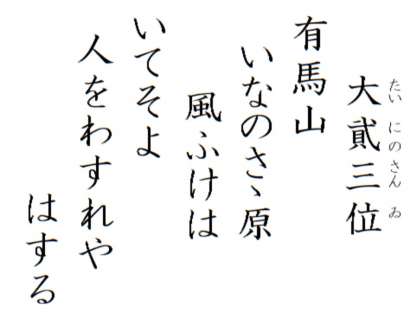 大貳三位
たいにのさんゐ
有馬山
いなのさゝ原
風ふけは
いてそよ
人をわすれや
はする